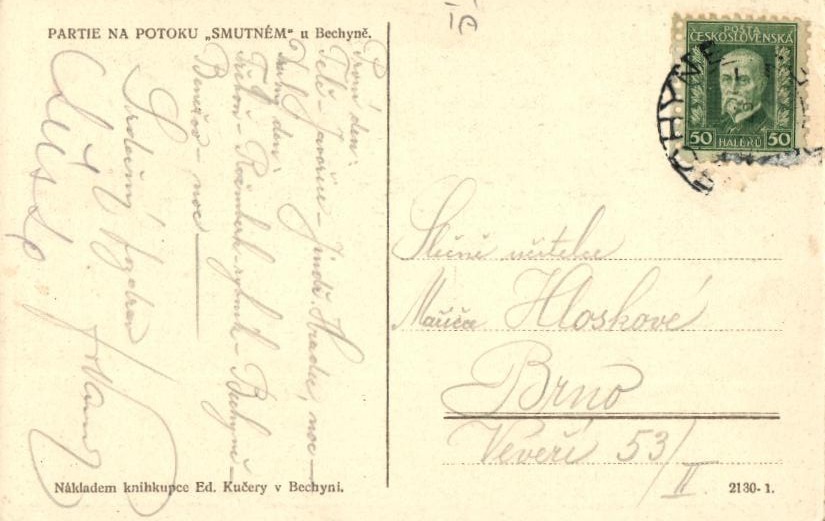 PARTIE NA POTOKU „SMUTNÉM" u Bechyně.
První den:
Telč – Javořice – Jindř. Hradec, noc –
Druhý den:
Třeboň – Rožmberk-rybník – Bechyně –
Benešov – noc
Srdečný pozdrav
Nákladem knihkupce Ed. Kučery v Bechyni.
IA
POŠTA
ČESKOSLOVENSKÁ
50 HALÉŘŮ 50
BECHYNĚ
Slečně učitelce
Hloskové
Brno
Veveří 53/II
2130-1.